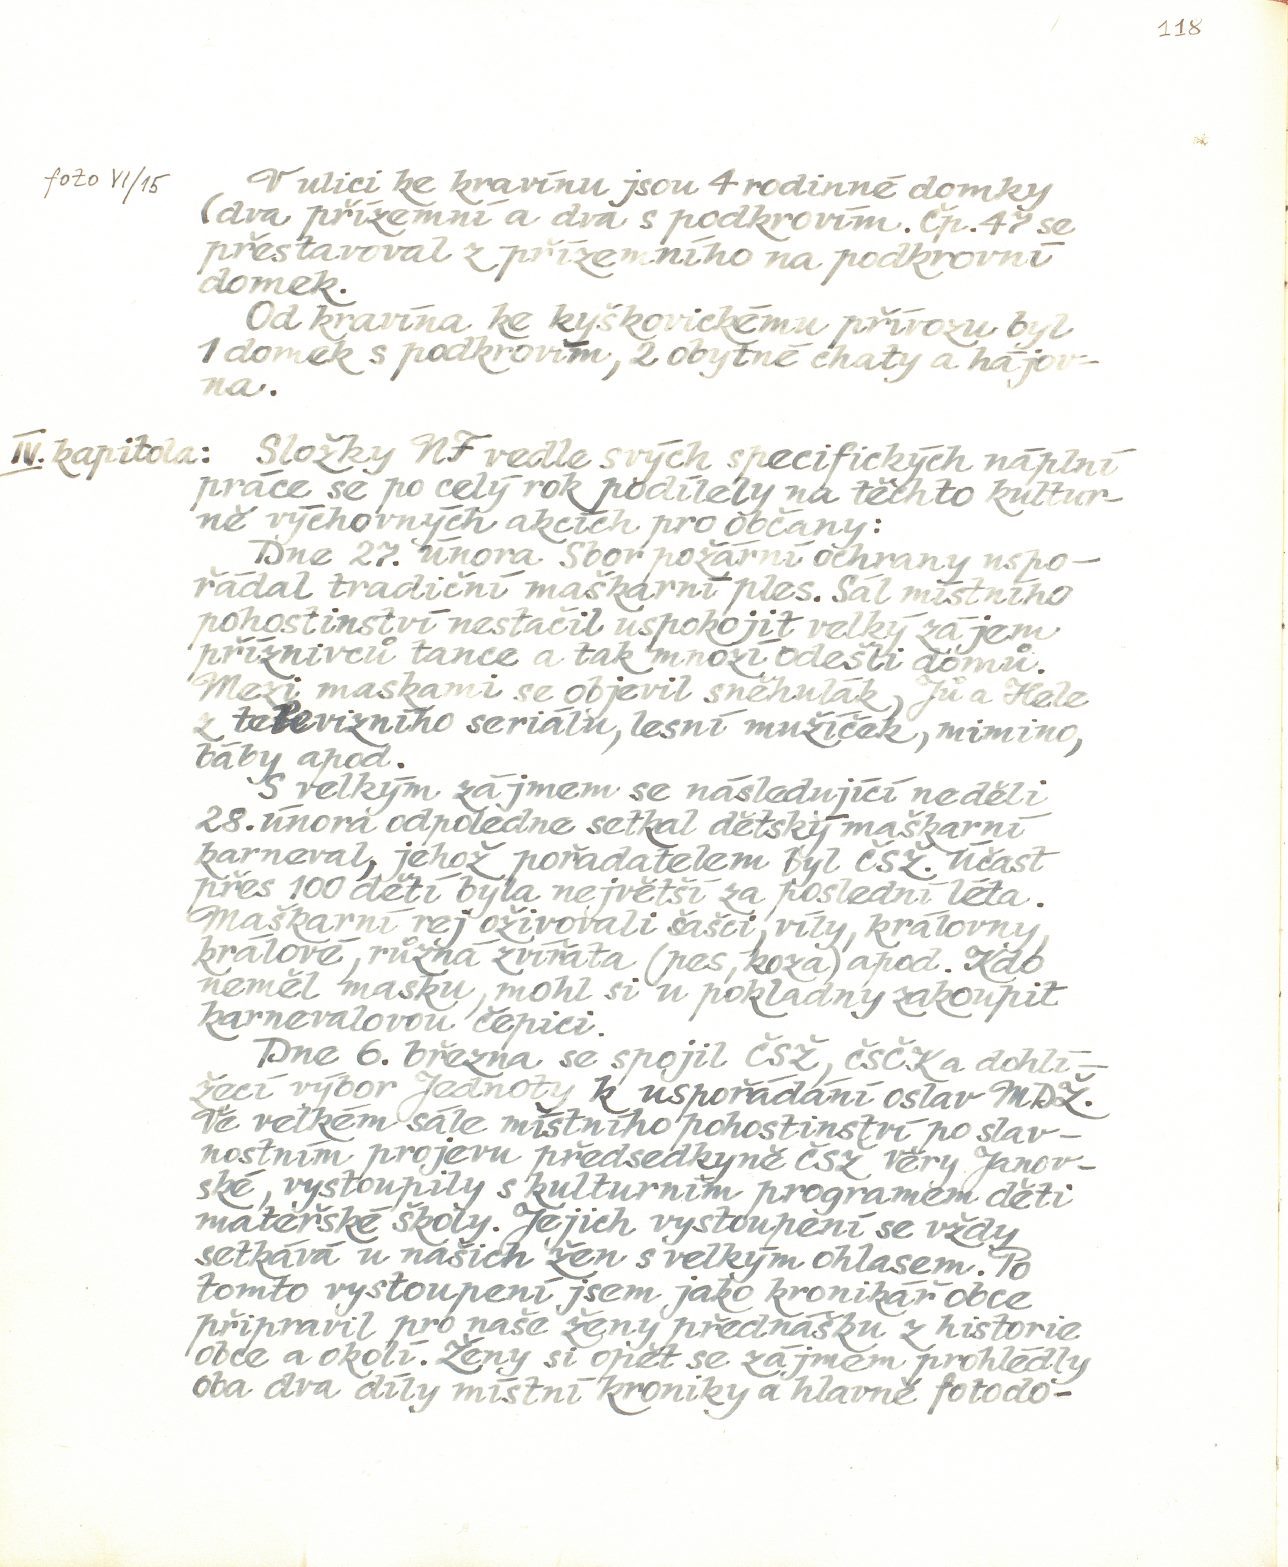 118
foto VI/15
V ulici ke kravínu jsou 4 rodinné domky
(dva přízemní a dva s podkrovím. Čp. 47 se
přestavoval z přízemního na podkrovní
domek.
Od kravína ke kyškovickému přívozu byl
1 domek s podkrovím, 2 obytné chaty a hájov-
na.
IV. kapitola: Složky NF vedle svých specifických náplní
práce se po celý rok podílely na těchto kultur-
ně výchovných akcích pro občany:
Dne 27. února Sbor požární ochrany uspo-
řádal tradiční maškarní ples. Sál místního
pohostinství nestačil uspokojit velký zájem
příznivců tance a tak mnozí odešli domů.
Mezi maskami se objevil sněhulák, Jů a Hele
z televizního seriálu, lesní mužíček, mimino,
báby apod.
S velkým zájmem se následující neděli
28. února odpoledne setkal dětský maškarní
karneval, jehož pořadatelem byl ČSŽ. Účast
přes 100 dětí byla největší za poslední léta.
Maškarní rej oživovali šašci, víly, královny,
králové, různá zvířata (pes, koza) apod. Kdo
neměl masku, mohl si u pokladny zakoupit
karnevalovou čepici.
Dne 6. března se spojil ČSŽ, ČSČK a dohlí-
žecí výbor Jednoty k uspořádání oslav MDŽ.
Ve velkém sále místního pohostinství po slav-
nostním projevu předsedkyně ČSŽ Věry Janov-
ské, vystoupily s kulturním programem děti
mateřské školy. Jejich vystoupení se vždy
setkává u našich žen s velkým ohlasem. Po
tomto vystoupení jsem jako kronikář obce
připravil pro naše ženy přednášku z historie
obce a okolí. Ženy si opět se zájmem prohlédly
oba dva díly místní kroniky a hlavně fotodo-